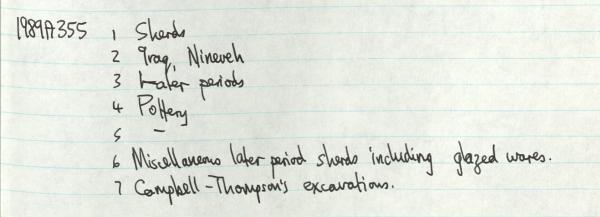 1989A355 1 Sherds
2 Iraq, Nineveh
3 Later periods
4 Pottery
5 –
6 Miscellaneous later period sherds including glazed wares.
7 Campbell-Thompson's excavations.